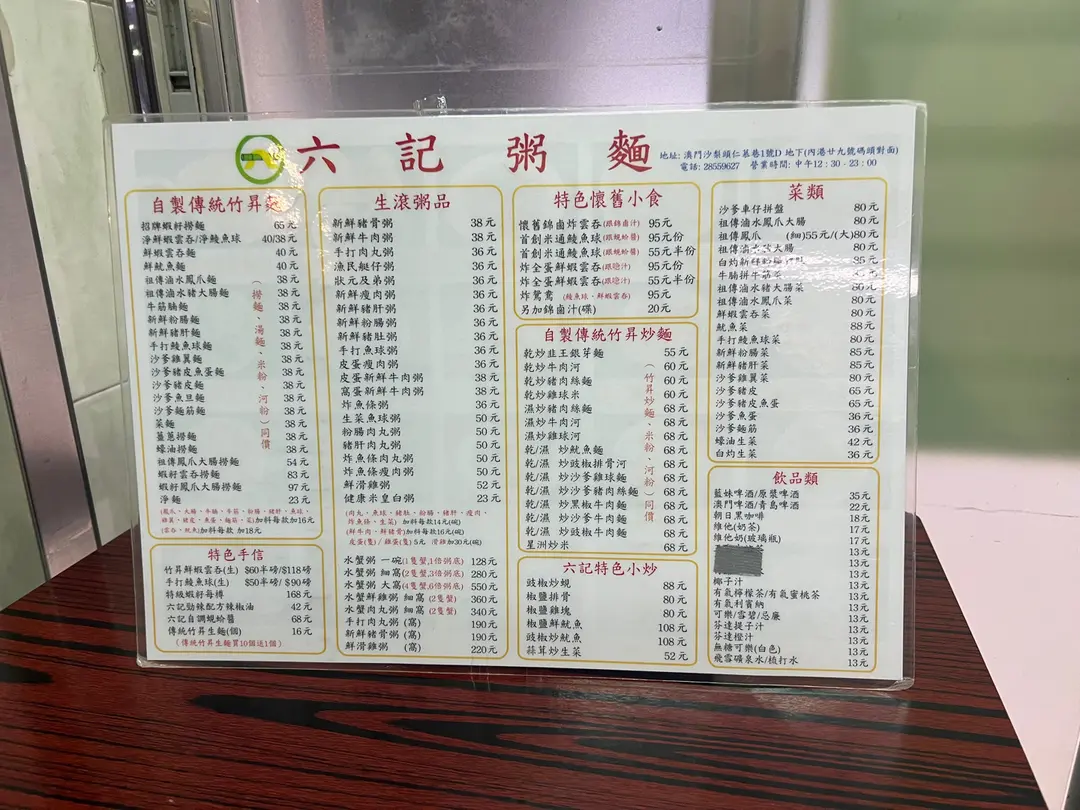 六記粥麵
地址: 澳門沙梨頭仁慕巷1號D 地下(內港廿九號碼頭對面)
電話: 28559627 營業時間: 中午12:30 - 23:00
自製傳統竹昇麵
招牌蝦籽撈麵 65元
淨鮮蝦雲吞/淨鯪魚球 40/38元
鮮蝦雲吞麵 40元
鮮魷魚麵 40元
祖傳滷水鳳爪麵 38元
祖傳滷水豬大腸麵 38元
牛筋腩麵 38元
新鮮粉腸麵 38元
新鮮豬肝麵 38元
手打鯪魚球麵 38元
沙爹雞翼麵 38元
沙爹豬皮魚蛋麵 38元
沙爹豬皮麵 38元
沙爹魚旦麵 38元
沙爹麵筋麵 38元
菜麵 38元
薑蔥撈麵 38元
蠔油撈麵 38元
祖傳鳳爪大腸撈麵 54元
蝦籽雲吞撈麵 83元
蝦籽鳳爪大腸撈麵 97元
淨麵 23元
(撈麵、湯麵、米粉、河粉)同價
(鳳爪、大腸、牛腩、牛筋、粉腸、豬肝、魚球、
雞翼、豬皮、魚蛋、麵筋、菜)加料每款加16元
(雲吞、魷魚)加料每款 加18元
特色手信
竹昇鮮蝦雲吞(生) $60半磅/$118磅
手打鯪魚球(生) $50半磅/$90磅
特級蝦籽每樽 168元
六記勁辣配方辣椒油 42元
六記自調蜆蚧醬 68元
傳統竹昇生麵(個) 16元
(傳統竹昇生麵買10個送1個)
生滾粥品
新鮮豬骨粥 38元
新鮮牛肉粥 38元
手打肉丸粥 36元
漁民艇仔粥 36元
狀元及弟粥 36元
新鮮瘦肉粥 36元
新鮮豬肝粥 36元
新鮮粉腸粥 36元
新鮮豬肚粥 36元
手打魚球粥 36元
皮蛋瘦肉粥 36元
皮蛋新鮮牛肉粥 38元
窩蛋新鮮牛肉粥 38元
炸魚條粥 36元
生菜魚球粥 50元
粉腸肉丸粥 50元
豬肝肉丸粥 50元
炸魚條肉丸粥 50元
炸魚條瘦肉粥 50元
鮮滑雞粥 52元
健康米皇白粥 23元
(肉丸、魚球、豬肚、粉腸、豬肝、瘦肉、
炸魚條、生菜) 加料每款14元(碗)
(鮮牛肉、鮮豬骨)加料每款16元(碗)
皮蛋(隻)/ 雞蛋(隻) 5元 滑雞加30元(碗)
水蟹粥 一碗(1隻蟹,1倍粥底) 128元
水蟹粥 細窩(2隻蟹,3倍粥底) 280元
水蟹粥 大窩(4隻蟹,6倍粥底) 550元
水蟹鮮雞粥 細窩 (2隻蟹) 360元
水蟹肉丸粥 細窩 (2隻蟹) 340元
手打肉丸粥 (窩) 190元
新鮮豬骨粥 (窩) 190元
鮮滑雞粥 (窩) 220元
特色懷舊小食
懷舊錦鹵炸雲吞(跟錦鹵汁) 95元
首創米通鯪魚球(跟蜆蚧醬) 95元份
首創米通鯪魚球(跟蜆蚧醬) 55元半份
炸全蛋鮮蝦雲吞(跟喼汁) 95元份
炸全蛋鮮蝦雲吞(跟喼汁) 55元半份
炸鴛鴦 (鯪魚球、鮮蝦雲吞) 95元
另加錦鹵汁(碟) 20元
自製傳統竹昇炒麵
乾炒韭王銀芽麵 55元
乾炒牛肉河 60元
乾炒豬肉絲麵 60元
乾炒雞球米 60元
濕炒豬肉絲麵 68元
濕炒牛肉河 68元
濕炒雞球河 68元
乾/濕 炒魷魚麵 68元
乾/濕 炒豉椒排骨河 68元
乾/濕 炒沙爹雞球麵 68元
乾/濕 炒沙爹豬肉絲麵 68元
乾/濕 炒黑椒牛肉麵 68元
乾/濕 炒沙爹牛肉麵 68元
乾/濕 炒豉椒牛肉麵 68元
星洲炒米 68元
(竹昇炒麵、米粉、河粉)同價
六記特色小炒
豉椒炒蜆 88元
椒鹽排骨 80元
椒鹽雞塊 80元
椒鹽鮮魷魚 108元
豉椒炒魷魚 108元
蒜茸炒生菜 52元
菜類
沙爹車仔拼盤 80元
祖傳滷水鳳爪大腸 80元
祖傳鳳爪 (細)55元/(大)80元
80元
85元
牛腩拼牛筋菜
祖傳滷水豬大腸菜 80元
祖傳滷水鳳爪菜 80元
鮮蝦雲吞菜 80元
魷魚菜 88元
手打鯪魚球菜 80元
新鮮粉腸菜 85元
新鮮豬肝菜 85元
沙爹雞翼菜 80元
沙爹豬皮 65元
沙爹豬皮魚蛋 65元
沙爹魚蛋 36元
沙爹麵筋 36元
蠔油生菜 42元
白灼生菜 36元
飲品類
藍妹啤酒/原漿啤酒 35元
澳門啤酒/青島啤酒 22元
朝日黑咖啡 18元
維他(奶茶) 13元
維他奶(玻璃瓶) 13元
13元
13元
椰子汁 13元
有氣檸檬茶/有氣蜜桃茶 13元
有氣利賓納 13元
可樂/雪碧/忌廉 13元
芬達提子汁 13元
芬達橙汁 13元
無糖可樂(白色) 13元
飛雪礦泉水/梳打水 13元